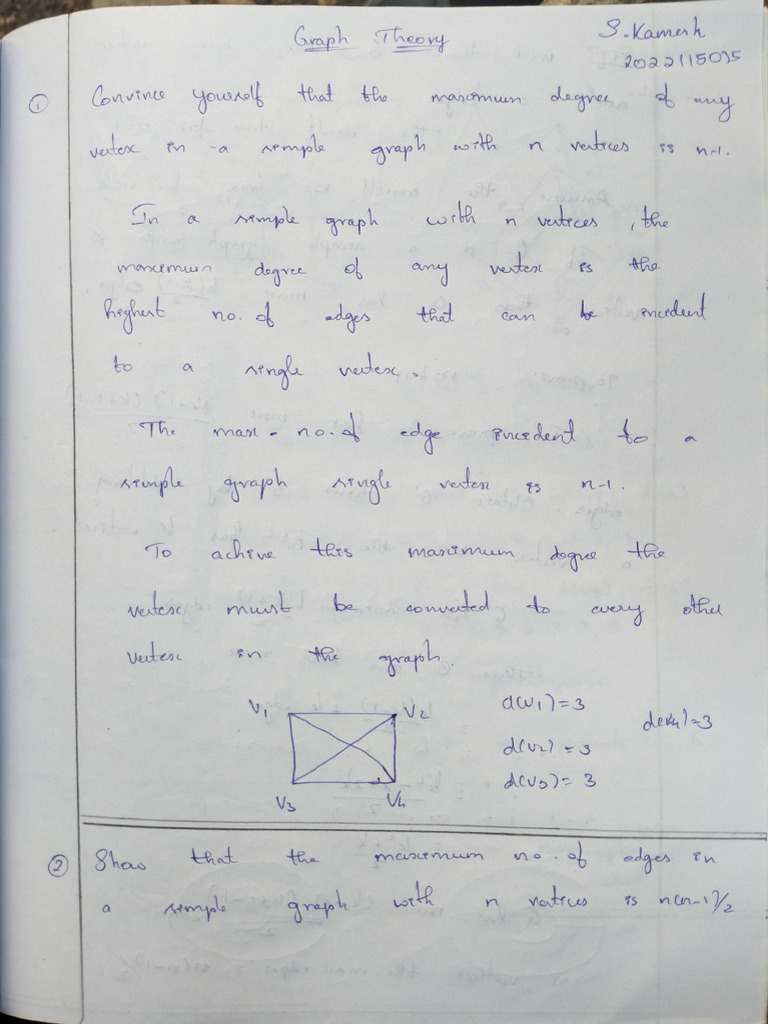 Graph Theory
S. Kamesh
2022115035
① Convince yourself that the maximum degree of any
vertex in a simple graph with n vertices is n-1.
In a simple graph with n vertices, the
maximum degree of any vertex is the
highest no. of edges that can be incident
to a single vertex.
The max. no. of edge incident to a
simple graph single vertex is n-1.
To achive this maximum degree the
vertex must be converted to every other
vertex in the graph.
V1 V2 d(v1)=3 d(v4)=3
d(v2)=3
d(v3)=3
V3 V4
② Show that the maximum no. of edges in
a simple graph with n vertices is n(n-1)/2